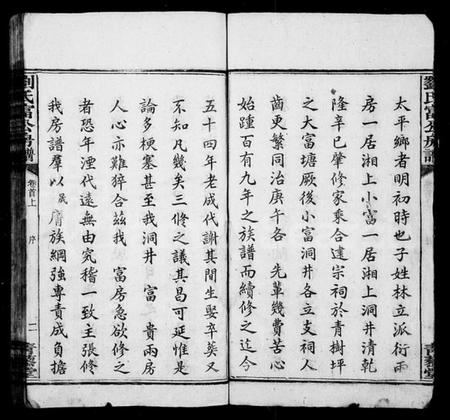 劉氏富公房譜
太平鄉者明初時也子姓林立派衍兩
房一居湘上小富一居湘上洞井清乾
隆辛巳肇修家乘合建宗祠於青樹坪
之大富塘厥後小富洞井各立支祠人
齒更繁同治庚午各 先輩幾費苦心
始踵百有九年之族譜而續修之迄今
五十四年老成代謝其間生娶卒葬又
不知凡幾矣三修之議其曷可延惟是
論多梗塞甚至我洞井 富 貴兩房
人心亦難猝合茲我 富房急欲修之
者恐年湮代遠無由究稽一致主張修
我房譜羣以 族綱強專責成負擔
劉氏富公房譜
卷首上
序
二